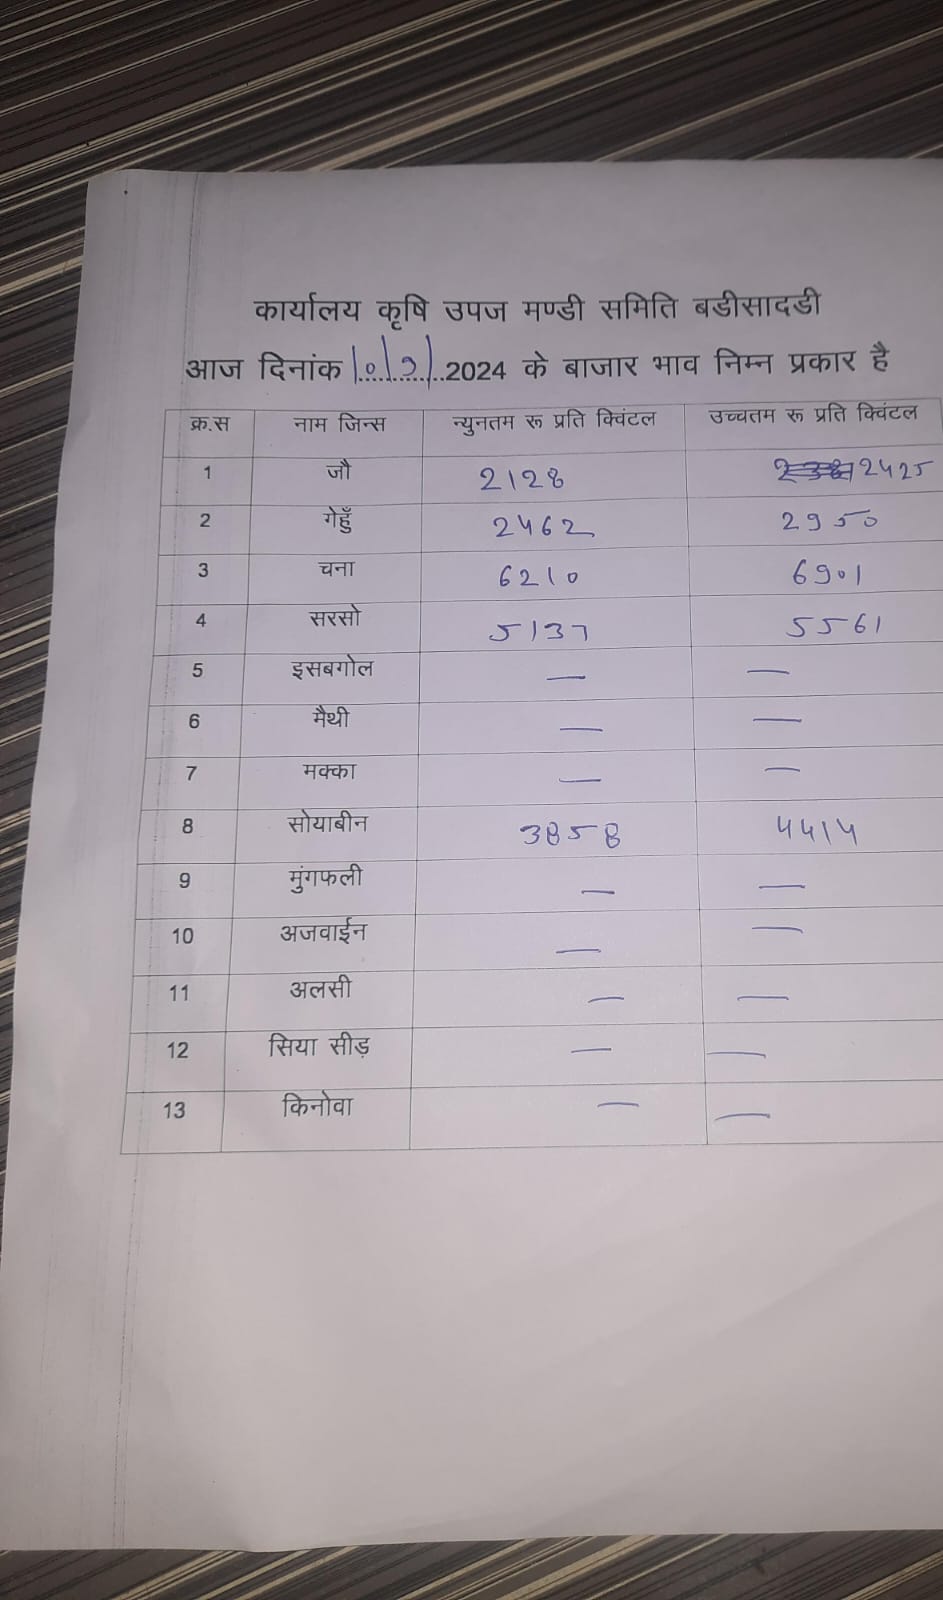 कार्यालय कृषि उपज मण्डी समिति बडीसादडी
आज दिनांक 10/9/2024 के बाजार भाव निम्न प्रकार है
क्र.स नाम जिन्स न्युनतम रू प्रति क्विंटल उच्चतम रू प्रति क्विंटल
1 जौ 2128 2425
2 गेहुँ 2462 2950
3 चना 6210 6901
4 सरसो 5137 5561
5 इसबगोल — —
6 मैथी — —
7 मक्का — —
8 सोयाबीन 3858 4414
9 मुंगफली — —
10 अजवाईन — —
11 अलसी — —
12 सिया सीड़ — —
13 किनोवा — —